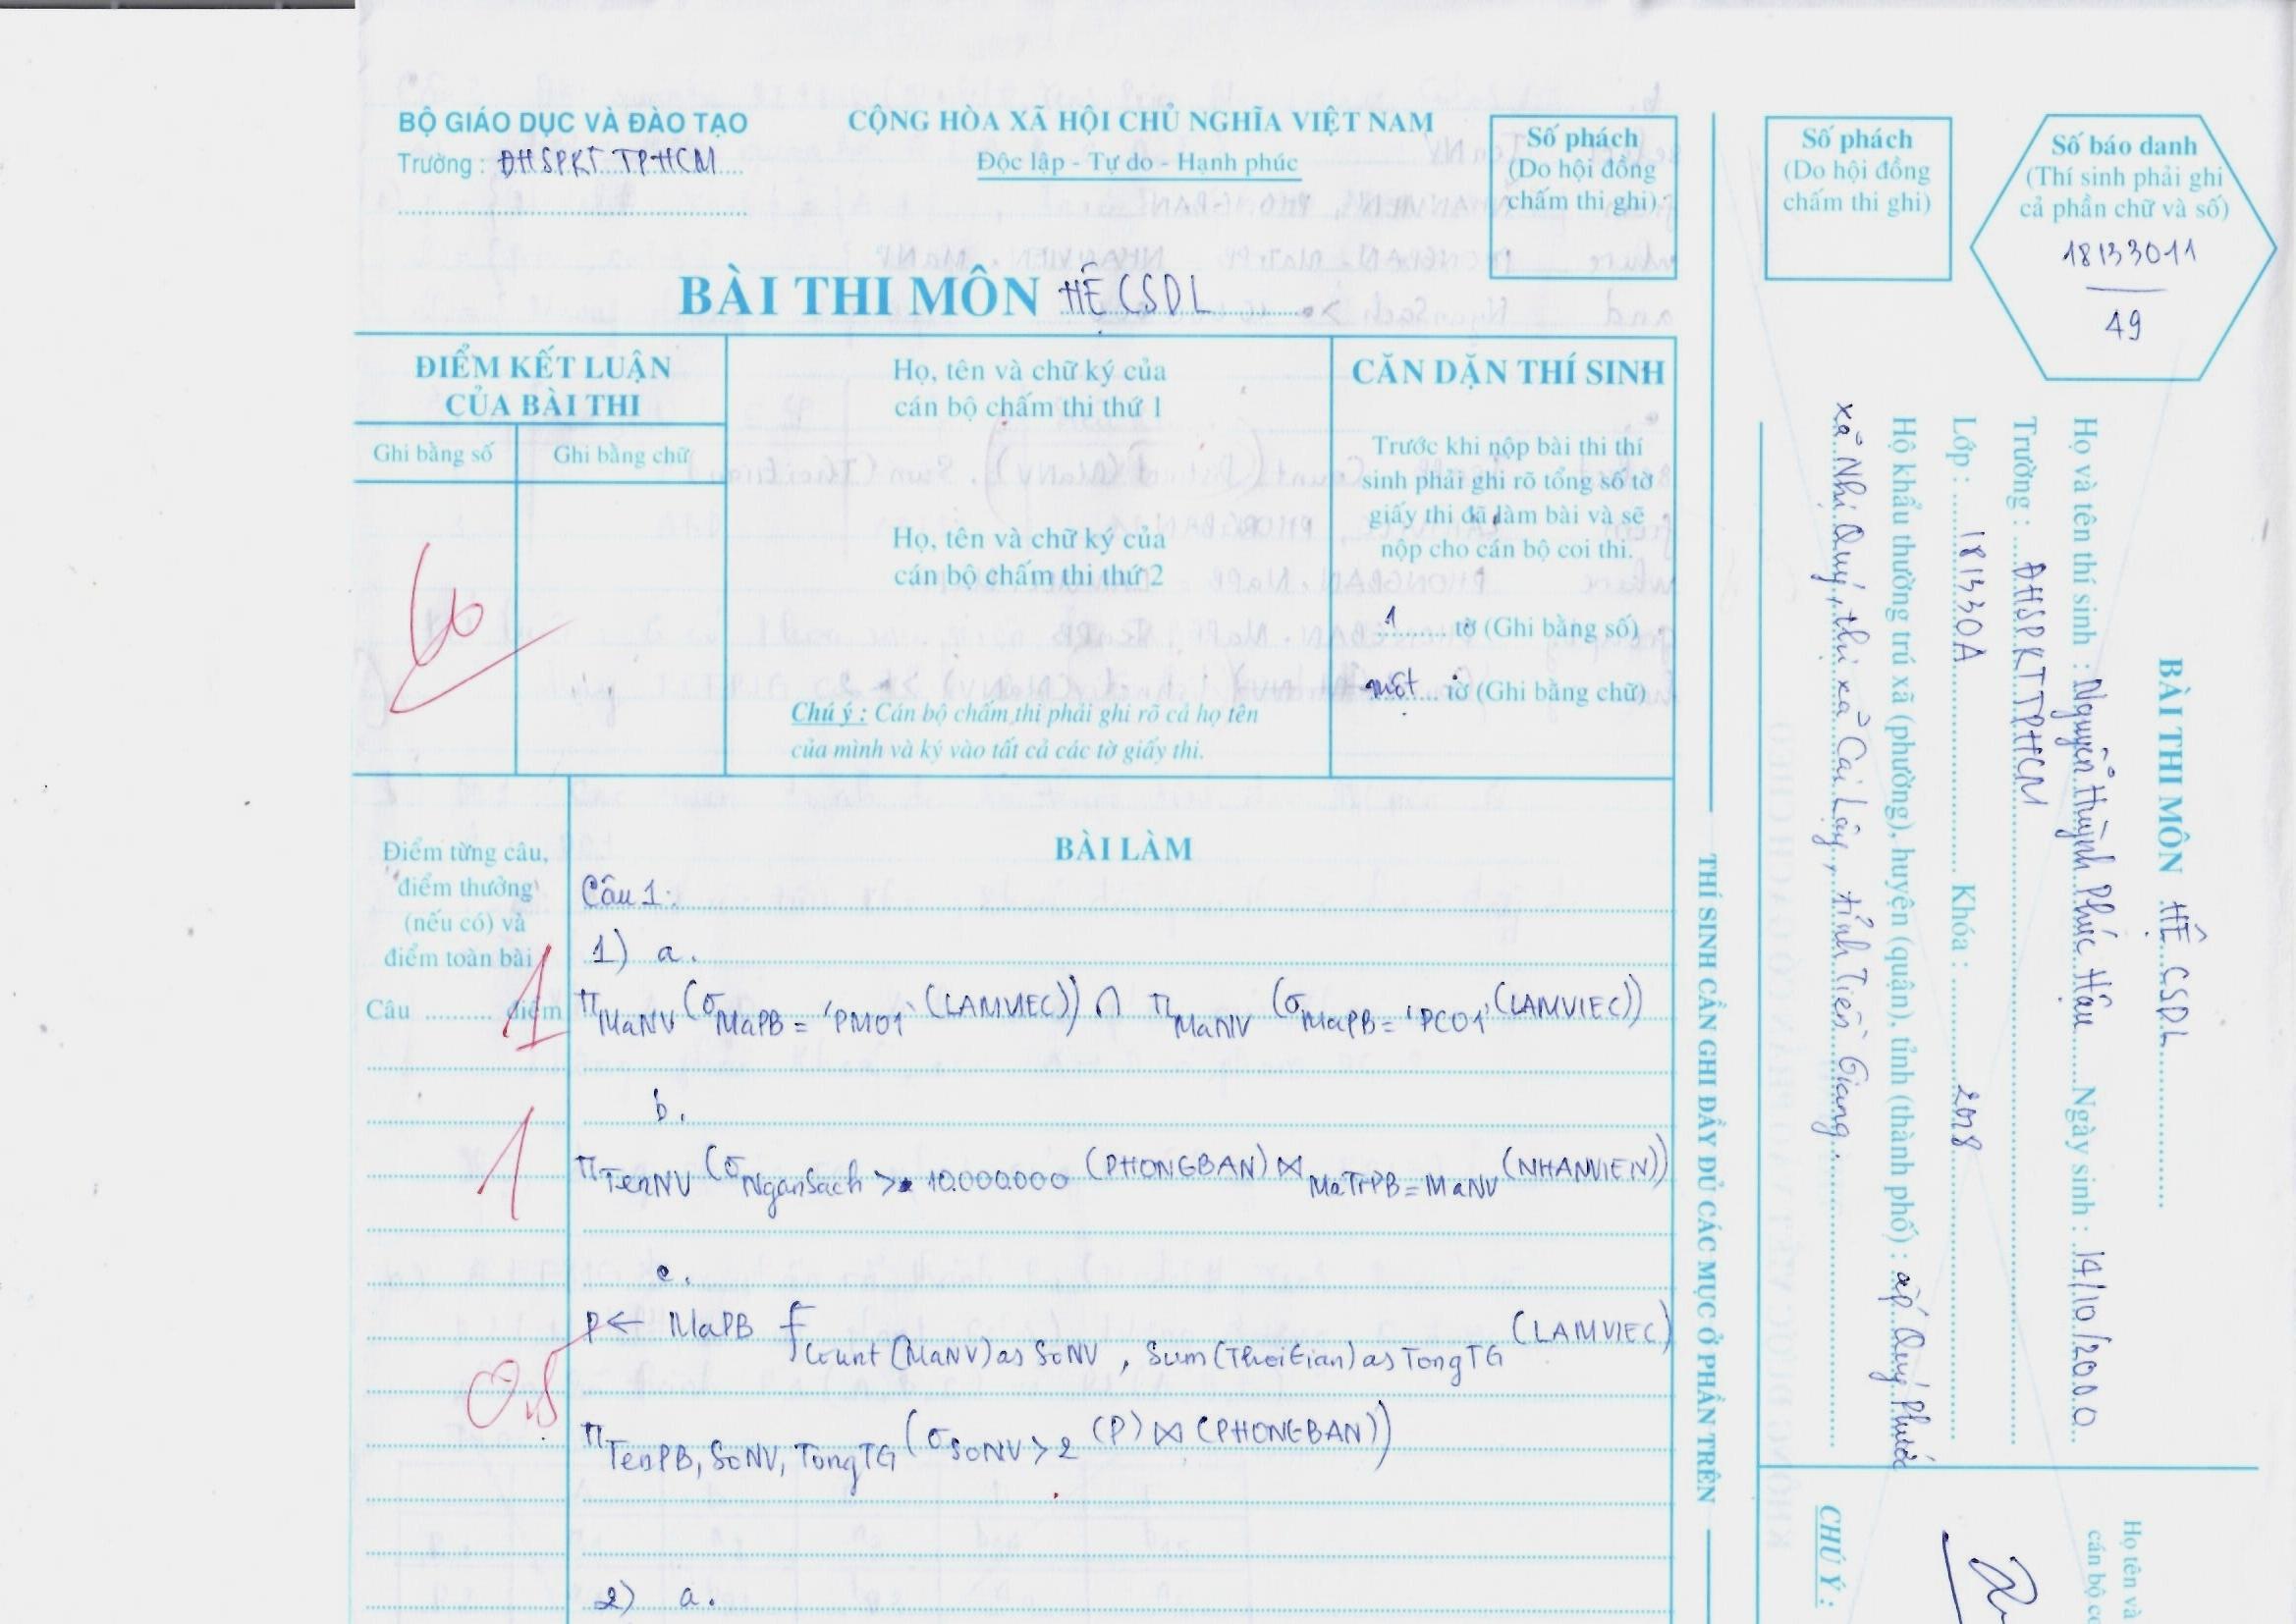 BỘ GIÁO DỤC VÀ ĐÀO TẠO
Trường : ĐHSPKT TPHCM
CỘNG HÒA XÃ HỘI CHỦ NGHĨA VIỆT NAM
Độc lập - Tự do - Hạnh phúc
Số phách
(Do hội đồng
chấm thi ghi)
BÀI THI MÔN HỆ CSDL
ĐIỂM KẾT LUẬN
CỦA BÀI THI
Ghi bằng số
Ghi bằng chữ
Họ, tên và chữ ký của
cán bộ chấm thi thứ 1
Họ, tên và chữ ký của
cán bộ chấm thi thứ 2
Chú ý : Cán bộ chấm thi phải ghi rõ cả họ tên
của mình và ký vào tất cả các tờ giấy thi.
CĂN DẶN THÍ SINH
Trước khi nộp bài thi thí
sinh phải ghi rõ tổng số tờ
giấy thi đã làm bài và sẽ
nộp cho cán bộ coi thi.
1 tờ (Ghi bằng số)
một tờ (Ghi bằng chữ)
Điểm từng câu,
điểm thưởng
(nếu có) và
điểm toàn bài
Câu .......... điểm
1
1
0.8
BÀI LÀM
Câu 1:
1) a.
π MaNV (σ MaPB = 'PM01' (LAMVIEC)) ∩ π MaNV (σ MaPB = 'PC01' (LAMVIEC))
b.
π TenNV (σ NganSach > 10.000.000 (PHONGBAN) ⋈ MaTrPB = MaNV (NHANVIEN))
c.
P ← MaPB ℱ Count (MaNV) as SoNV , Sum (ThoiGian) as TongTG (LAMVIEC)
π TenPB, SoNV, TongTG (σ SoNV > 2 (P) ⋈ (PHONGBAN))
2) a.
THÍ SINH CẦN GHI ĐẦY ĐỦ CÁC MỤC Ở PHẦN TRÊN
Số phách
(Do hội đồng
chấm thi ghi)
Số báo danh
(Thí sinh phải ghi
cả phần chữ và số)
18133011
49
BÀI THI MÔN HỆ CSDL
Họ và tên thí sinh : Nguyễn Huỳnh Phúc Hậu Ngày sinh : 14/10/2000
Trường : ĐHSPKTTPHCM
Lớp : 181330A Khóa : 2018
Hộ khẩu thường trú xã (phường), huyện (quận), tỉnh (thành phố) : ấp Quý Phước
xã Nhị Quý, thị xã Cai Lậy, tỉnh Tiền Giang.
Họ tên và
cán bộ co
CHÚ Ý :